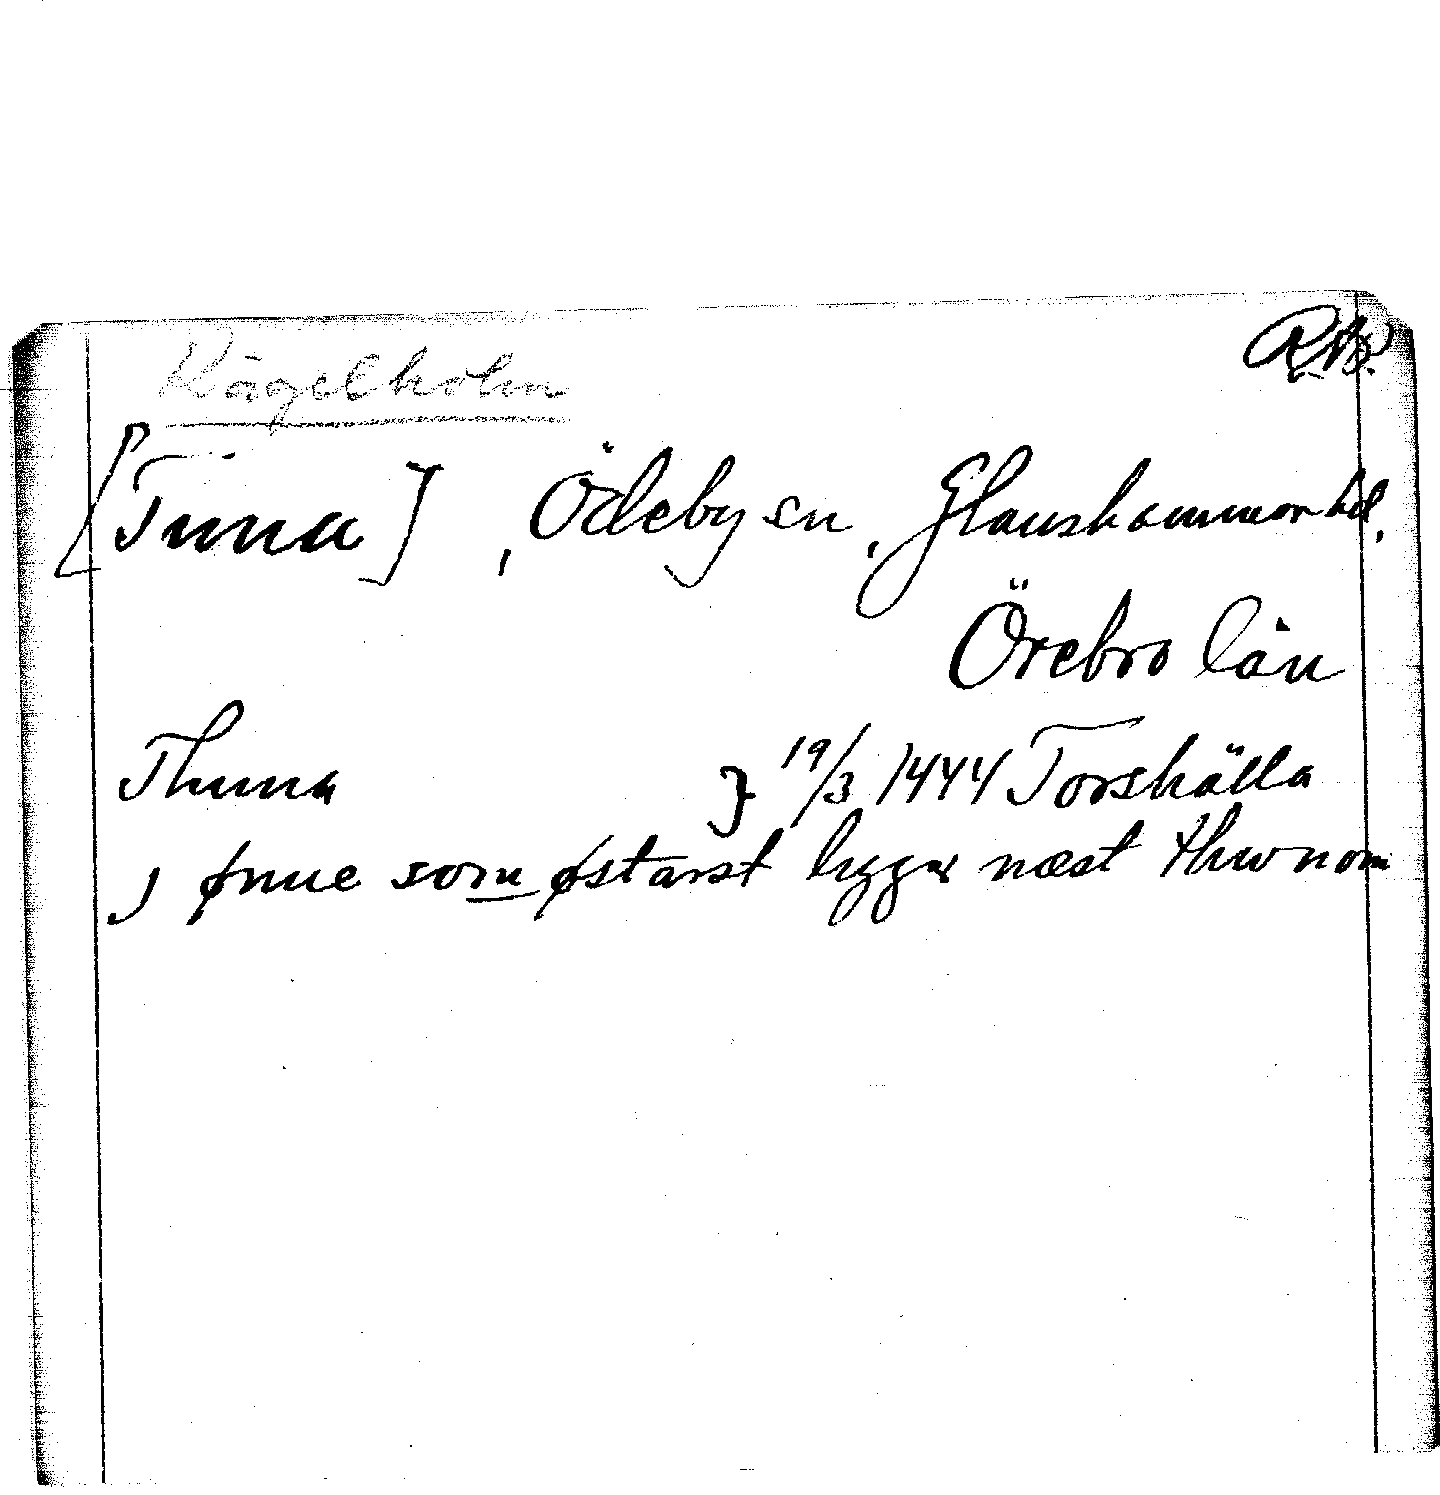 Kägelholm
RAP.
[Tuna], Ödeby sn, Glanshammar hd,
Örebro län
Thuna } 19/3 1444 Torshälla
j ønne som østarst ligger næst thwnom